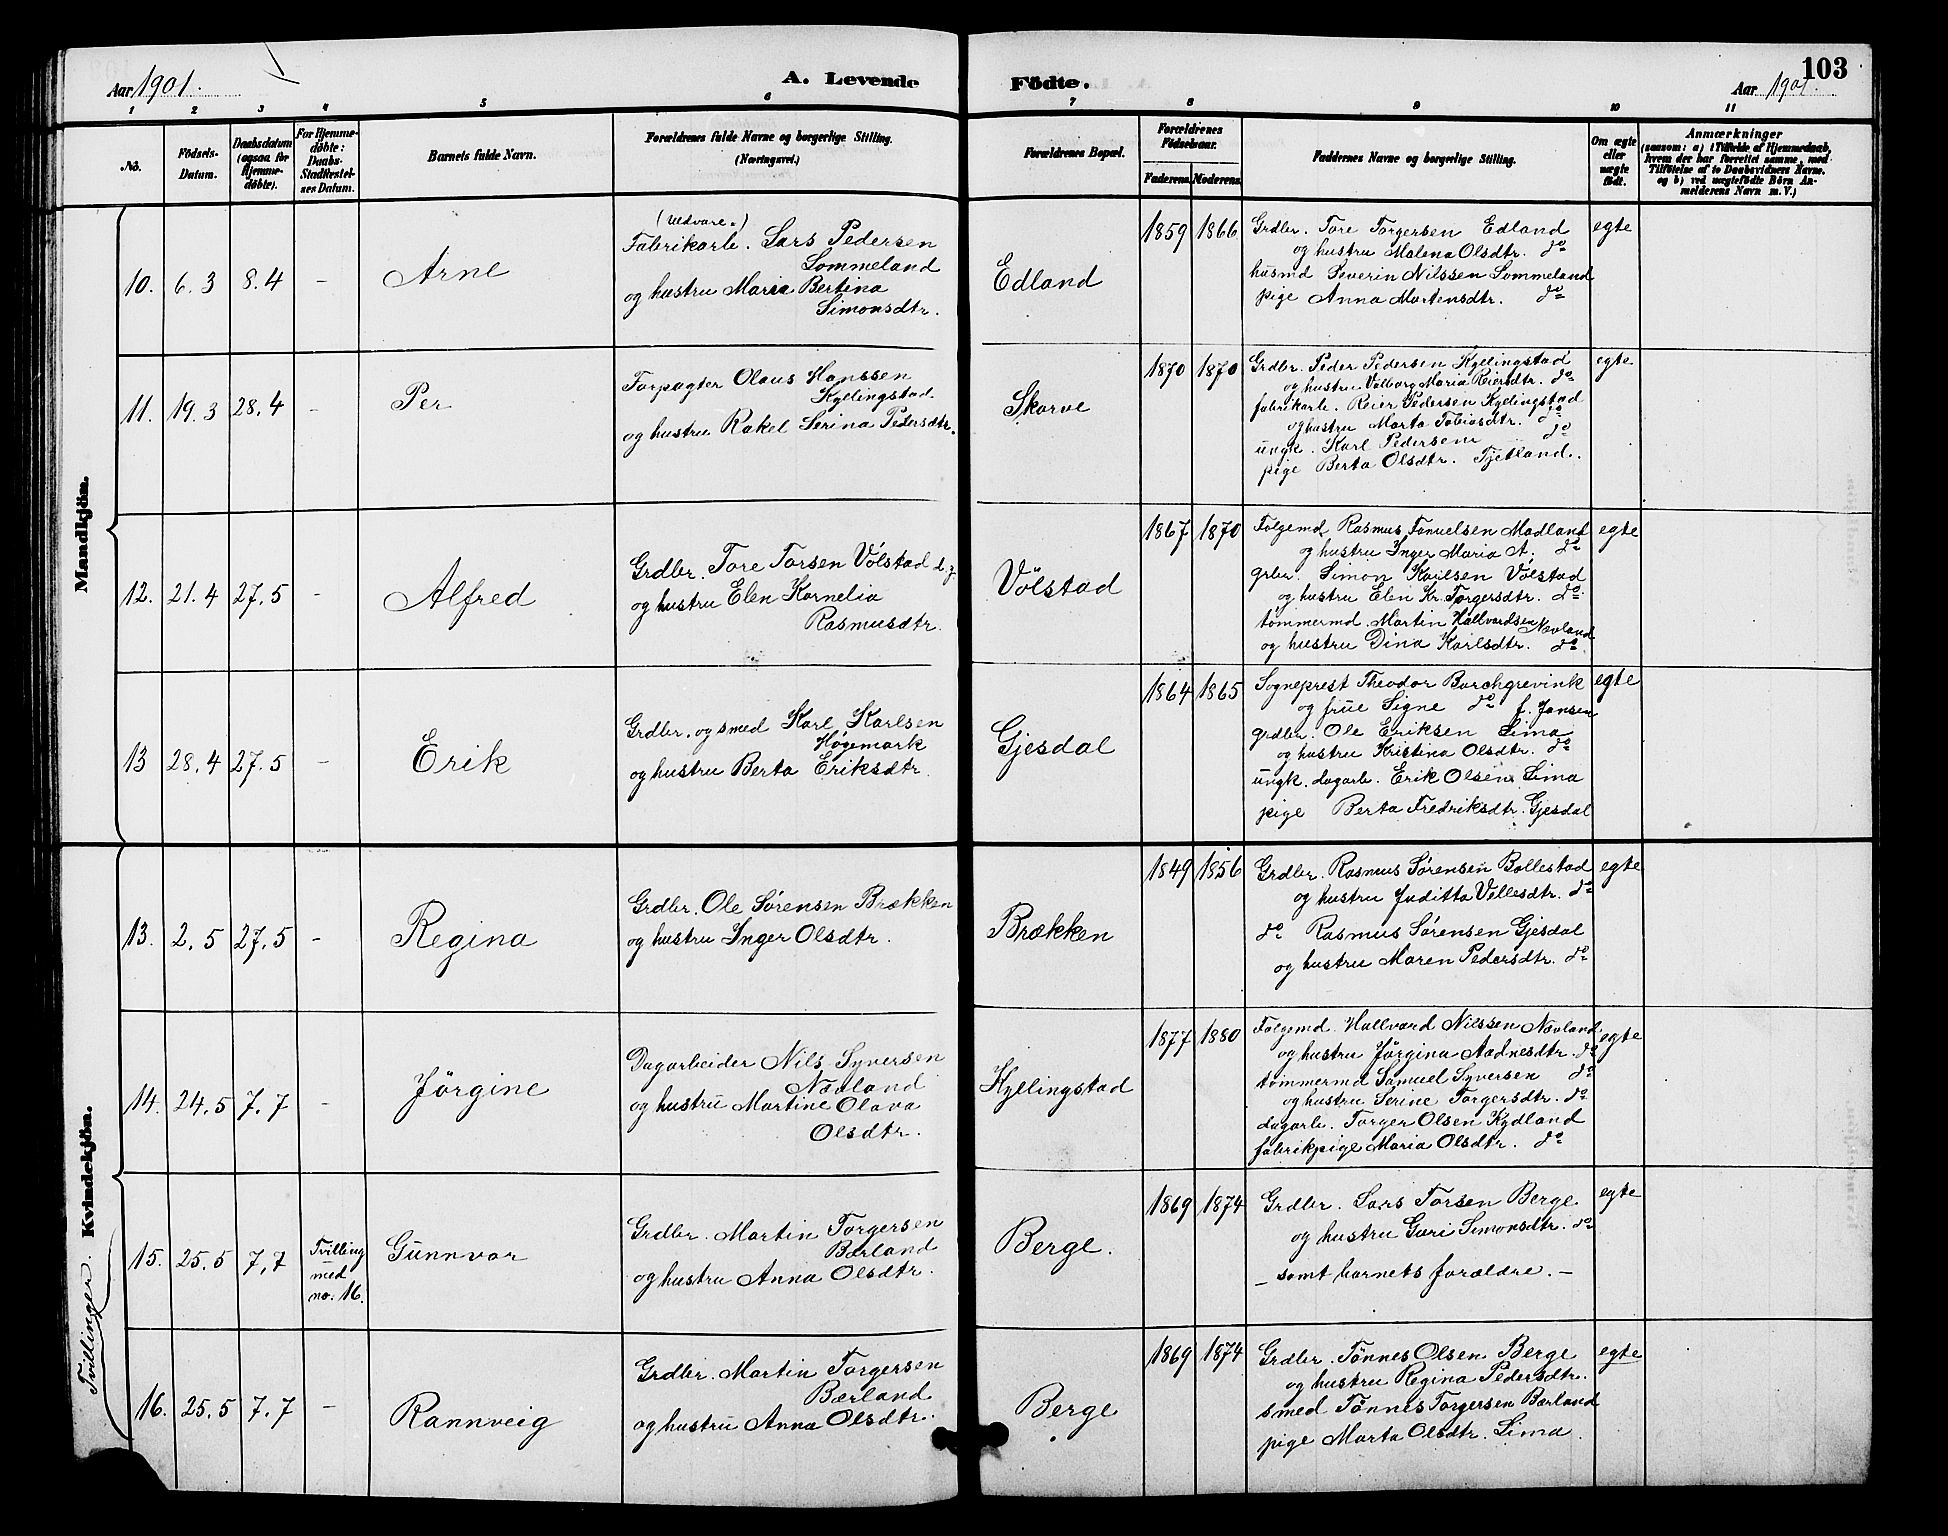 103
Aar 1901.
A. Levende
Födte.
Aar 1901.
1 2 3 4 5 6 7 8 9 10 11
No.
Födsels-
Datum.
Daabsdatum
(ogsaa for
Hjemme-
döbte).
For Hjemme-
döbte:
Daabs-
Stadfæstel-
ses Datum.
Barnets fulde Navn.
Forældrenes fulde Navne og borgerlige Stilling.
(Næringsvei.)
Forældrenes Bopæl.
Forældrenes
Födselsaar.
Faderens. Moderens.
Faddernes Navne og borgerlige Stilling.
Om ægte
eller
uægte
födt.
Anmærkninger
(saasom: a) i Tilfælde af Hjemmedaab,
hvem der har forrettet samme, med
Tilföielse af to Daabsvidners Navne.
og b) ved uægtefödte Börn An-
melderens Navn m. V.)
Mandkjön.
10. 6.3 8.4 –
Arne
(uldvare.)
Fabrikarb. Lars Pedersen
Sommeland
og hustru Maria Bertina
Simonsdtr.
Edland
1859 1866
Grdbr. Tore Torgersen Edland
og hustru Malena Olsdtr. do
husmd Severin Nilssen Sommeland
pige Anna Martensdtr. do
egte
11. 19.3 28.4 –
Per
Forpagter Olaus Hanssen
Kyllingstad
og hustru Rakel Serina Pedersdtr.
Skarve
1870 1870
Grdbr. Peder Pedersen Kyllingstad
og hustru Valborg Maria Reiersdtr. do
fabrikarb. Reier Pedersen Kyllingstad
og hustru Marta Tobiasdtr. do
ungk. Karl Pedersen do
pige Berta Olsdtr. Tjetland.
egte
12. 21.4 27.5 –
Alfred
Grdbr. Tore Torsen Völstad d. y.
og hustru Elen Kornelia
Rasmusdtr.
Völstad
1867 1870
Folgemd Rasmus Tonuelsen Madland
og hustru Inger Maria A. do
grbr. Simon Karlsen Völstad
og hustru Elen Kr. Torgersdtr. do
tömmermd. Martin Hallvardsen Novland
og hustru Dina Karlsdtr. do
egte
13 28.4 27.5 –
Erik
Grdbr. og smed Karl Karlsen
Høgemark
og hustru Berta Eriksdtr.
Gjesdal
1864 1865
Sogneprest Theodor Borchgrevink
og frue Signe do f. Jansen
grdbr. Ole Eriksen Lima
og hustru Kristina Olsdtr. do
ungk. dagarb. Erik Olsen Lima
pige Berta Fredriksdtr. Gjesdal
egte
Kvindekjön.
13. 2.5 27.5 –
Regina
Grdbr. Ole Sørensen Brækken
og hustru Inger Olsdtr.
Brækken
1849 1856
Grdbr. Rasmus Sørensen Bollestad
og hustru Juditta Villesdtr. do
do Rasmus Sørensen Gjesdal
og hustru Maren Pedersdtr. do
egte
14. 24.5 7.7 –
Jörgine
Dagarbeider Nils Syversen
Novland
og hustru Martine Olava
Olsdtr.
Kyllingstad
1877 1880
Folgemd. Hallvard Nilssen Novland
og hustru Jörgina Aadnesdtr. do
tömmermd Samuel Syversen do
og hustru Serine Torgersdtr. do
dagarb. Torger Olsen Kydland
fabrikpige Maria Olsdtr. do
egte
Tvillinger
15. 25.5 7.7
Tvilling
med
no. 16.
Gunnvor
Grdbr. Martin Torgersen
Bærland
og hustru Anna Olsdtr.
Berge.
1869 1874
Grdbr. Lars Torsen Berge
og hustru Guri Simonsdtr. do
– samt barnets forældre. –
egte
16. 25.5 7.7 –
Rannveig
Grdbr. Martin Torgersen
Bærland
og hustru Anna Olsdtr.
Berge
1869 1874
Grdbr. Tönnes Olsen Berge
og hustru Regina Pedersdtr.
smed Tönnes Torgersen Bærland
pige Marta Olsdtr. Lima.
egte